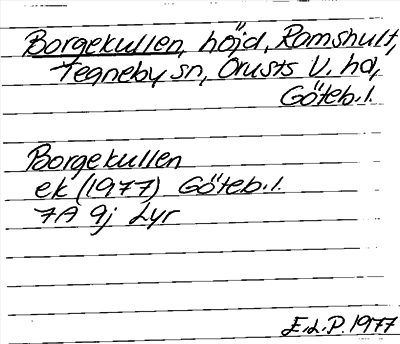 Borgekullen, höjd, Ramshult,
Tegneby sn, Orusts V. hd,
Göteb. l.
Borgekullen
ek (1977) Göteb. l.
7A 9j Lyr
E.L.P. 1977